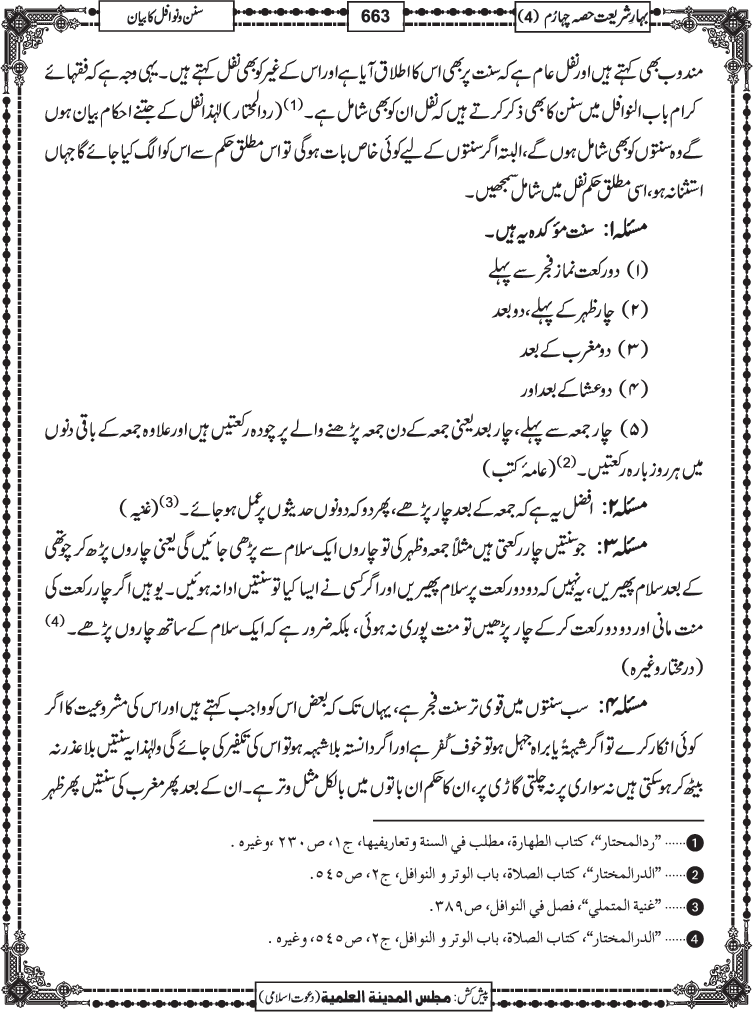 بہارِ شریعت حصہ چہارُم (4)
663
سنن و نوافل کا بیان
مندوب بھی کہتے ہیں اور نفل عام ہے کہ سنت پر بھی اس کا اطلاق آیا ہے اور اس کے غیر کو بھی نفل کہتے ہیں۔ یہی وجہ ہے کہ فقہائے
کرام باب النوافل میں سنن کا بھی ذکر کرتے ہیں کہ نفل ان کو بھی شامل ہے۔(1) (ردالمحتار) لہٰذا نفل کے جتنے احکام بیان ہوں
گے وہ سنتوں کو بھی شامل ہوں گے، البتہ اگر سنتوں کے لیے کوئی خاص بات ہوگی تو اس مطلق حکم سے اس کو الگ کیا جائے گا جہاں
استثنا نہ ہو، اسی مطلق حکم نفل میں شامل سمجھیں۔
مسئلہ ۱: سنت مؤکدہ یہ ہیں۔
(۱) دو رکعت نماز فجر سے پہلے
(۲) چار ظہر کے پہلے، دو بعد
(۳) دو مغرب کے بعد
(۴) دو عشا کے بعد اور
(۵) چار جمعہ سے پہلے، چار بعد یعنی جمعہ کے دن جمعہ پڑھنے والے پر چودہ رکعتیں ہیں اور علاوہ جمعہ کے باقی دنوں
میں ہر روز بارہ رکعتیں۔(2) (عامۂ کتب)
مسئلہ ۲: افضل یہ ہے کہ جمعہ کے بعد چار پڑھے، پھر دو کہ دونوں حدیثوں پر عمل ہو جائے۔(3) (غنیہ)
مسئلہ ۳: جو سنتیں چار رکعتی ہیں مثلاً جمعہ و ظہر کی تو چاروں ایک سلام سے پڑھی جائیں گی یعنی چاروں پڑھ کر چوتھی
کے بعد سلام پھیریں، یہ نہیں کہ دو دو رکعت پر سلام پھیریں اور اگر کسی نے ایسا کیا تو سنتیں ادا نہ ہوئیں۔ یوہیں اگر چار رکعت کی
منت مانی اور دو دو رکعت کر کے چار پڑھیں تو منت پوری نہ ہوئی، بلکہ ضرور ہے کہ ایک سلام کے ساتھ چاروں پڑھے۔(4)
(درمختار وغیرہ)
مسئلہ ۴: سب سنتوں میں قوی تر سنت فجر ہے، یہاں تک کہ بعض اس کو واجب کہتے ہیں اور اس کی مشروعیت کا اگر
کوئی انکار کرے تو اگر شبہۃً یا براہ جہل ہو تو خوف کُفر ہے اور اگر دانستہ بلا شبہہ ہو تو اس کی تکفیر کی جائے گی ولہٰذا یہ سنتیں بلا عذر نہ
بیٹھ کر ہو سکتی ہیں نہ سواری پر نہ چلتی گاڑی پر، ان کا حکم ان باتوں میں بالکل مثل وتر ہے۔ ان کے بعد پھر مغرب کی سنتیں پھر ظہر
1 ...... "ردالمحتار"، كتاب الطهارة، مطلب في السنة وتعاريفيها، ج١، ص٢٣٠، وغيره .
2 ...... "الدرالمختار"، كتاب الصلاة، باب الوتر و النوافل، ج٢، ص٥٤٥.
3 ...... "غنية المتملي"، فصل في النوافل، ص٣٨٩.
4 ...... "الدرالمختار"، كتاب الصلاة، باب الوتر و النوافل، ج٢، ص٥٤٥، وغيره .
پیش کش: مجلس المدینۃ العلمیۃ (دعوت اسلامی)